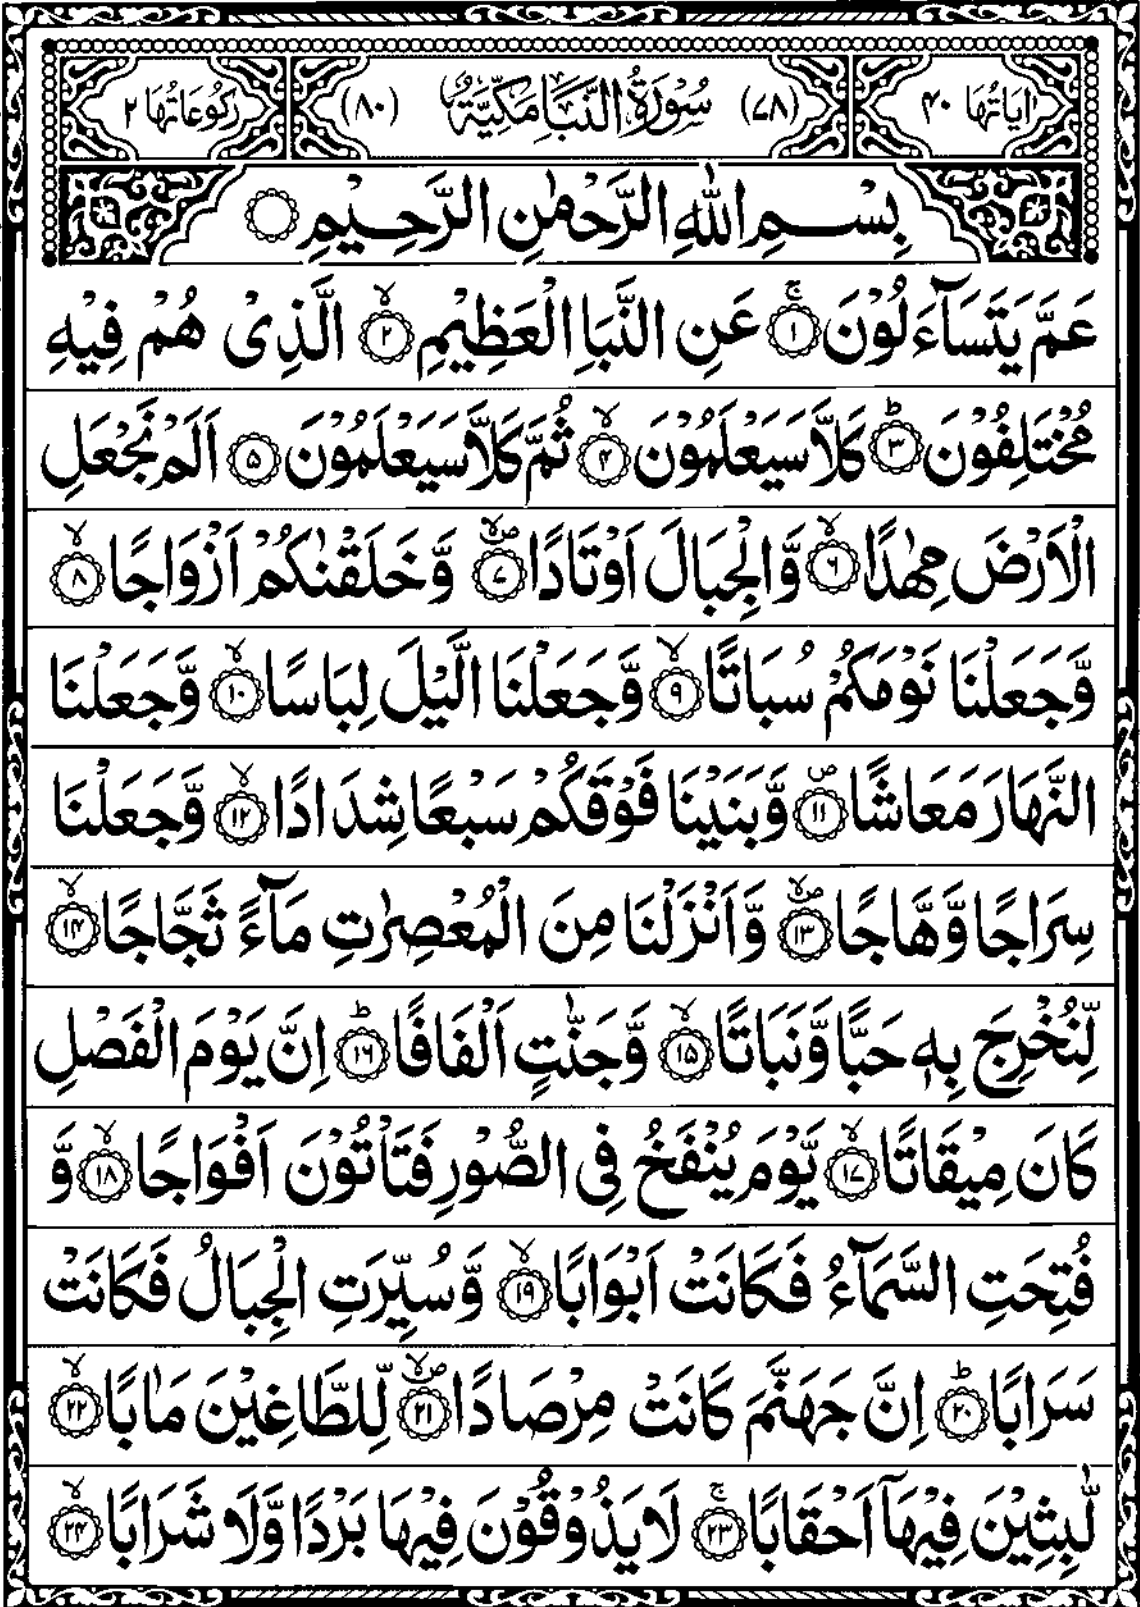 اٰيَاتُهَا ۴۰ (۷۸) سُوْرَةُ النَّبَاِ مَكِّيَّةٌ (۸۰) رُكُوْعَاتُهَا ۲
بِسْمِ اللّٰهِ الرَّحْمٰنِ الرَّحِيْمِ
عَمَّ يَتَسَآءَلُوْنَ ۚ‏﴿۱﴾ عَنِ النَّبَاِ الْعَظِيْمِ ۙ‏﴿۲﴾ الَّذِىْ هُمْ فِيْهِ
مُخْتَلِفُوْنَ ؕ‏﴿۳﴾ كَلَّا سَيَعْلَمُوْنَ ۙ‏﴿۴﴾ ثُمَّ كَلَّا سَيَعْلَمُوْنَ‏﴿۵﴾ اَلَمْ نَجْعَلِ
الْاَرْضَ مِهٰدًا ۙ‏﴿۶﴾ وَّالْجِبَالَ اَوْتَادًا ۪ۙ‏﴿۷﴾ وَّخَلَقْنٰكُمْ اَزْوَاجًا ۙ‏﴿۸﴾
وَّجَعَلْنَا نَوْمَكُمْ سُبَاتًا ۙ‏﴿۹﴾ وَّجَعَلْنَا الَّيْلَ لِبَاسًا ۙ‏﴿۱۰﴾ وَّجَعَلْنَا
النَّهَارَ مَعَاشًا ۪‏﴿۱۱﴾ وَّبَنَيْنَا فَوْقَكُمْ سَبْعًا شِدَادًا ۙ‏﴿۱۲﴾ وَّجَعَلْنَا
سِرَاجًا وَّهَّاجًا ۪ۙ‏﴿۱۳﴾ وَّاَنْزَلْنَا مِنَ الْمُعْصِرٰتِ مَآءً ثَجَّاجًا ۙ‏﴿۱۴﴾
لِّنُخْرِجَ بِهٖ حَبًّا وَّنَبَاتًا ۙ‏﴿۱۵﴾ وَّجَنّٰتٍ اَلْفَافًا ؕ‏﴿۱۶﴾ اِنَّ يَوْمَ الْفَصْلِ
كَانَ مِيْقَاتًا ۙ‏﴿۱۷﴾ يَّوْمَ يُنْفَخُ فِى الصُّوْرِ فَتَاْتُوْنَ اَفْوَاجًا ۙ‏﴿۱۸﴾ وَّ
فُتِحَتِ السَّمَآءُ فَكَانَتْ اَبْوَابًا ۙ‏﴿۱۹﴾ وَّسُيِّرَتِ الْجِبَالُ فَكَانَتْ
سَرَابًا ؕ‏﴿۲۰﴾ اِنَّ جَهَنَّمَ كَانَتْ مِرْصَادًا ۪ۙ‏﴿۲۱﴾ لِّلطَّاغِيْنَ مَاٰبًا ۙ‏﴿۲۲﴾
لّٰبِثِيْنَ فِيْهَآ اَحْقَابًا ۚ‏﴿۲۳﴾ لَا يَذُوْقُوْنَ فِيْهَا بَرْدًا وَّلَا شَرَابًا ۙ‏﴿۲۴﴾